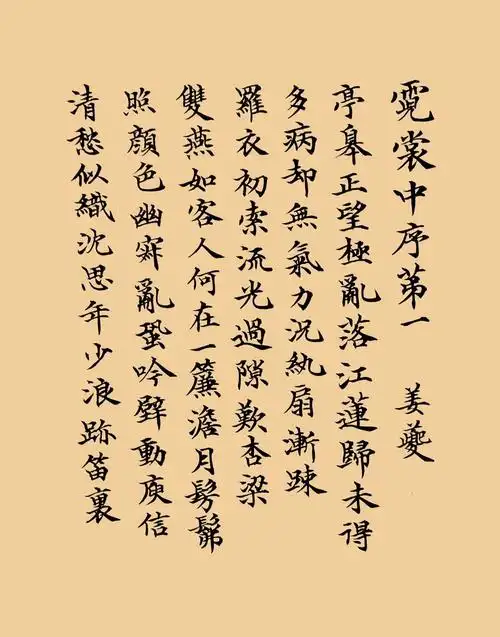 霓裳中序第一 姜夔
亭皋正望極亂落江蓮歸未得
多病却無氣力況紈扇漸踈
羅衣初索流光過隙歎杏梁
雙燕如客人何在一簾澹月髣髴
照顔色幽寂亂蛩吟壁動庾信
清愁似織沈思年少浪跡笛裏